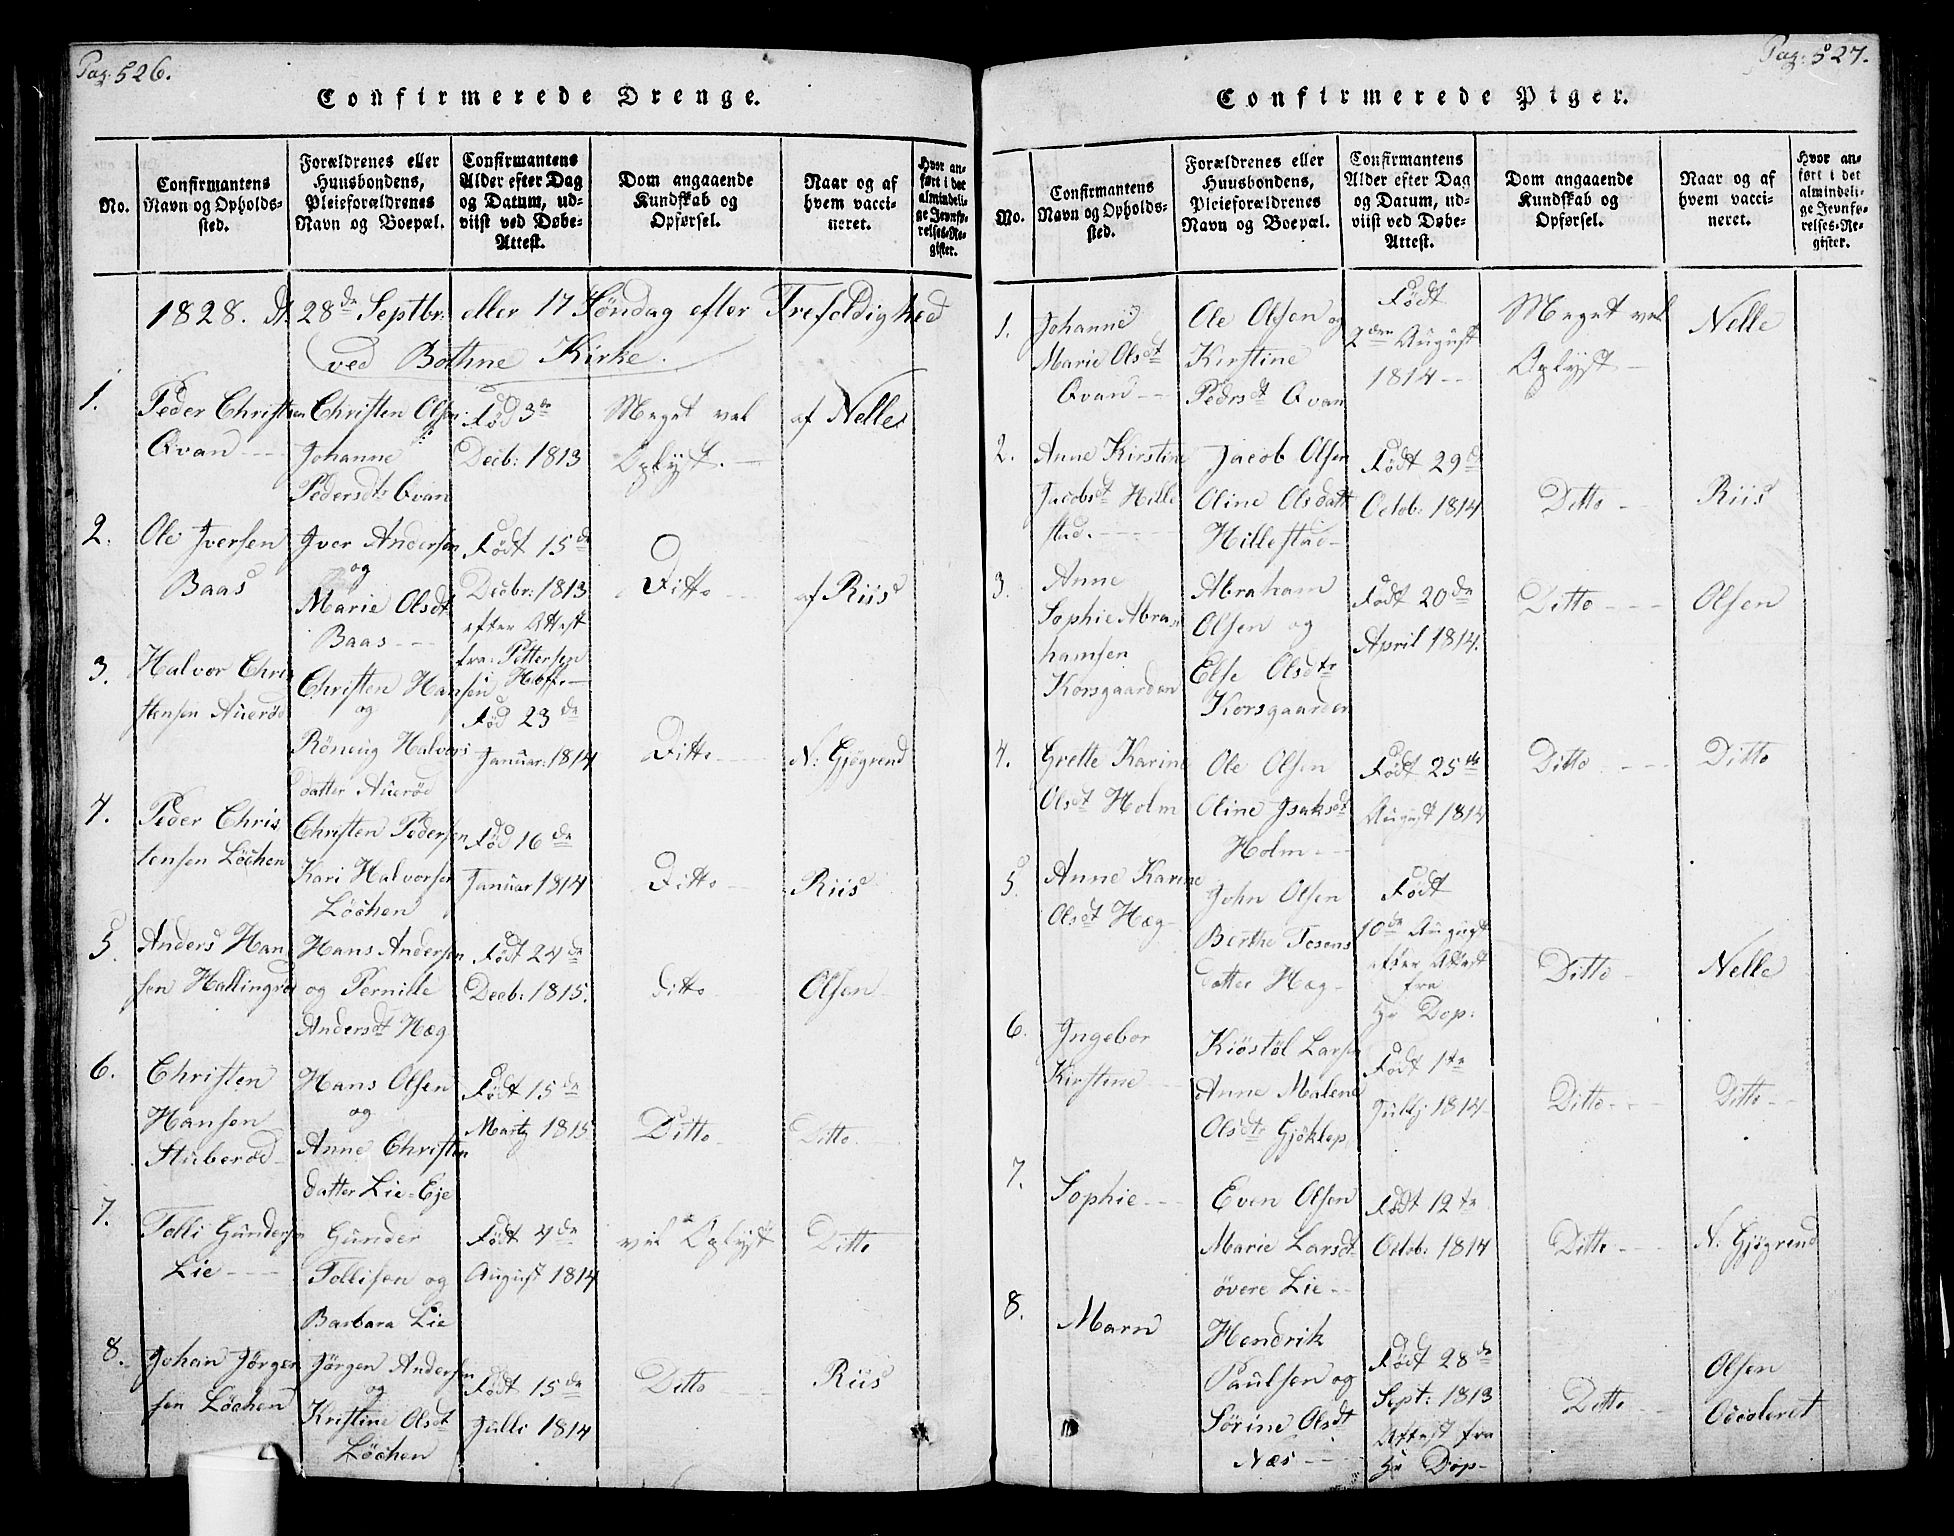 Pag. 526.
Confirmerede Drenge.
No.
Confirmantens
Navn og Opholds-
sted.
Forældrenes eller
Huusbondens,
Pleieforældrenes
Navn og Boepæl.
Confirmantens
Alder efter Dag
og Datum, ud-
viist ved Døbe-
Attest.
Dom angaaende
Kundskab og
Opførsel.
Naar og af
hvem vacci-
neret.
Hvor an-
ført i det
almindeli-
ge Jevnfø-
relses-Re-
gister.
1828. d. 28de Septbr: eller 17 Søndag efter Trefoldighed
ved Bothne Kirke.
1.
Peder Christen
Qvan
Christen Olsen
Johanne
Pedersdtr Qvan
Fød 3de
Decb: 1813
Meget vel
Oplyst.
af Nelle
2.
Ole Iversen
Baas
Iver Andersen
og
Marie Olsdt
Baas
Født 15de
Decbr: 1813
efter Attest
fra: Pettersen
Hoff.
Ditto
af Riis
3.
Halvor Chri
stensen Auerød
Christen Hansen
og
Röneug Halvors
datter Auerød
Fød 23de
Januar: 1814
Ditto
N: Gjögrend
4.
Peder Chris
tensen Löchen
Christen Pedersen
Kari Halvorsen
Löchen
Fød 16de
Januar 1814
Ditto
Riis
5.
Anders Han
sen Hallingrød
Hans Andersen
og Pernille
Andersdt Hæg
Født 24de
Decb: 1815.
ditto
Olsen
6.
Christen
Hansen
Stuberød
Hans Olsen
og
Anne Christen
datter Lie-Eje
Født 15de
Martz 1815
Ditto
Ditto
7.
Tolli Gundersen
Lie
Gunder
Tollisen og
Barbara Lie
Født 4de
August 1814
vel Oplyst
Ditto
8.
Johan Jörgen
sen Löchen
Jörgen Andersen
og
Kristine Olsdt
Löchen
Født 15de
Julli 1814
Ditto
Riis
Pag: 527.
Confirmerede Piger.
No.
Confirmantens
Navn og Opholds-
sted.
Forældrenes eller
Huusbondens,
Pleieforældrenes
Navn og Boepæl.
Confirmantens
Alder efter Dag
og Datum, ud-
viist ved Døbe-
Attest.
Dom angaaende
Kundskab og
Opførsel.
Naar og af
hvem vacci-
neret.
Hvor an-
ført i det
almindeli-
ge Jevnfø-
relses-Re-
gister.
1.
Johanne
Marie Olsdt
Qvan
Ole Olsen og
Kirstine
Pedrsdt Qvan
Født
2den August
1814
Meget vel
Oplyst
Nelle
2.
Anne Kirstine
Jacobsdt Hille
stad.
Jacob Olsen
Oline Olsdatt
Hillestad
Født 29d
Octob: 1814
Ditto
Riis
3.
Anne
Sophie Abra
hamsen
Korsgaarden
Abraham
Olsen og
Else Olsdtr
Korsgaarden
Født 20de
April 1814.
Ditto
Olsen
4.
Grette Karine
Olsdt Holm
Ole Olsen
Oline Isaksdt
Holm
Født 25de
August 1814
Ditto
Ditto
5.
Anne Karine
Olsdt Hæg
John Olsen
Berthe Tosens
datter Hæg
Født
10de August
efter Attest
fra
Hr Dop:
Ditto
Nelle
6.
Ingebor
Kirstine
Kiöstöl Larsen
Anne Malene
Olsdtr Gjöklep
Født 1te
Julij 1814
Ditto
Ditto
7.
Sophie
Even Olsen
Marie Larsdt
övere Lie
Født 12te
Octob: 1814
Ditto
N: Gjögrend
8.
Marn
Hendrik
Paulsen og
Sörine Olsdt
Næs
Født 28de
Sept: 1813
Attest fra
Hr Dop
Ditto
Olsen